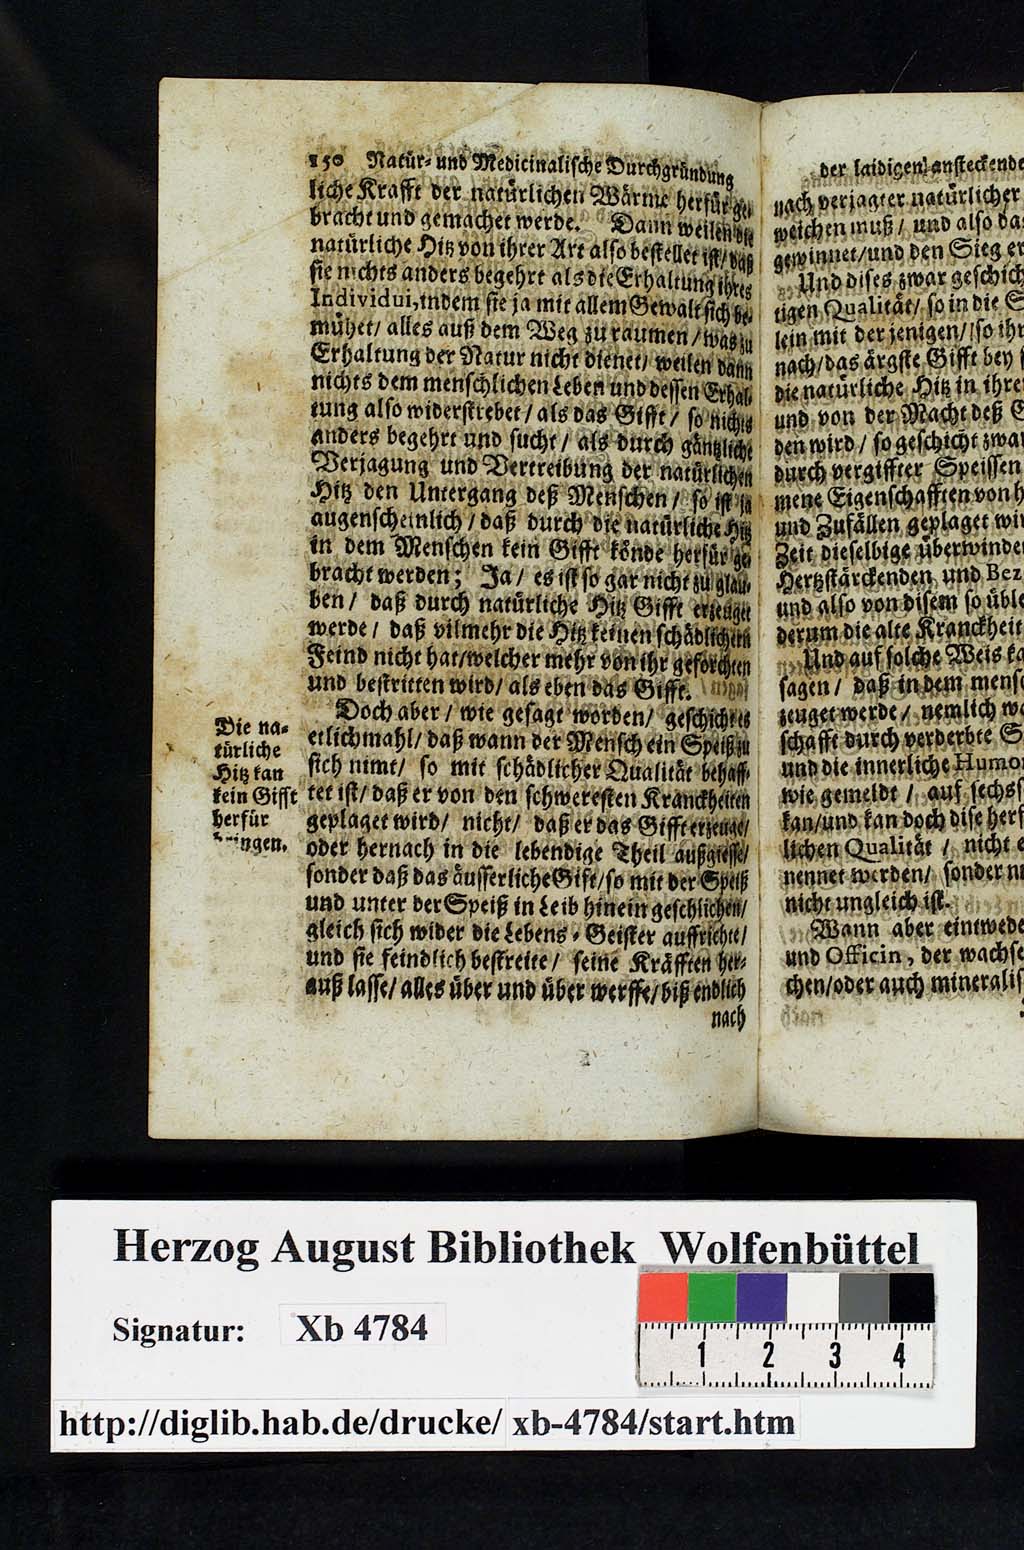 150 Natür- und Medicinalische Durchgründung
liche Krafft der natürlichen Wärme herfür ge-
bracht und gemachet werde. Dann weilen die
natürliche Hitz von ihrer Art also bestellet ist/ daß
sie nichts anders begehrt als die Erhaltung ihres
Individui, indem sie ja mit allem Gewalt sich be-
mühet/ alles auß dem Weg zu raumen/ was zu
Erhaltung der Natur nicht dienet/ weilen dann
nichts dem menschlichen Leben und dessen Erhal-
tung also widerstrebet/ als das Gifft/ so nichts
anders begehrt und sucht/ als durch gäntzliche
Verjagung und Vertreibung der natürlichen
Hitz den Untergang deß Menschen/ so ist ja
augenscheinlich/ daß durch die natürliche Hitz
in dem Menschen kein Gifft könde herfür ge-
bracht werden; Ja/ es ist so gar nicht zu glau-
ben/ daß durch natürliche Hitz Gifft erzeuget
werde/ daß vilmehr die Hitz keinen schädlichern
Feind nicht hat/ welcher mehr von ihr geforchten
und bestritten wird/ als eben das Gifft.
Doch aber/ wie gesagt worden/ geschicht es
etlichmahl/ daß wann der Mensch ein Speiß zu
sich nimt/ so mit schädlicher Qualität behaff-
tet ist/ daß er von den schweresten Kranckheiten
geplaget wird/ nicht/ daß er das Gifft erzeuge/
oder hernach in die lebendige Theil außgiesse/
sonder daß das äusserliche Gift/ so mit der Speiß
und unter der Speiß in Leib hinein geschlichen/
gleich sich wider die Lebens-Geister auffrichte/
und sie feindlich bestreite/ seine Kräfften her-
auß lasse/ alles über und über werffe/ biß endlich
nach
Die na-
türliche
Hitz kan
kein Gifft
herfür
bringen.
der laidigen ansteckende
nach verjagter natürlicher
weichen muß/ und also da
gewinnet/ und den Sieg er
Und dises zwar geschich
tigen Qualität/ so in die S
lein mit der jenigen/ so ihr
nach/ das ärgste Gifft bey
die natürliche Hitz in ihre
und von der Macht deß G
den wird/ so geschicht zwar
durch vergiffter Speissen
mene Eigenschafften von h
und Zufällen geplaget wir
Zeit dieselbige überwinde
Hertzstärckenden und Bez
und also von disem so üble
derum die alte Kranckheit
Und auf solche Weis ka
sagen/ daß in dem mensc
zeuget werde/ nemlich wa
schafft durch verderbte S
und die innerliche Humo
wie gemeldt/ auf sechs
kan/ und kan doch dise herf
lichen Qualität/ nicht e
nennet werden/ sonder n
nicht ungleich ist.
Wann aber eintwede
und Officin, der wachse
chen/ oder auch mineralis
Herzog August Bibliothek Wolfenbüttel
Signatur: Xb 4784
1 2 3 4
http://diglib.hab.de/drucke/ xb-4784/start.htm